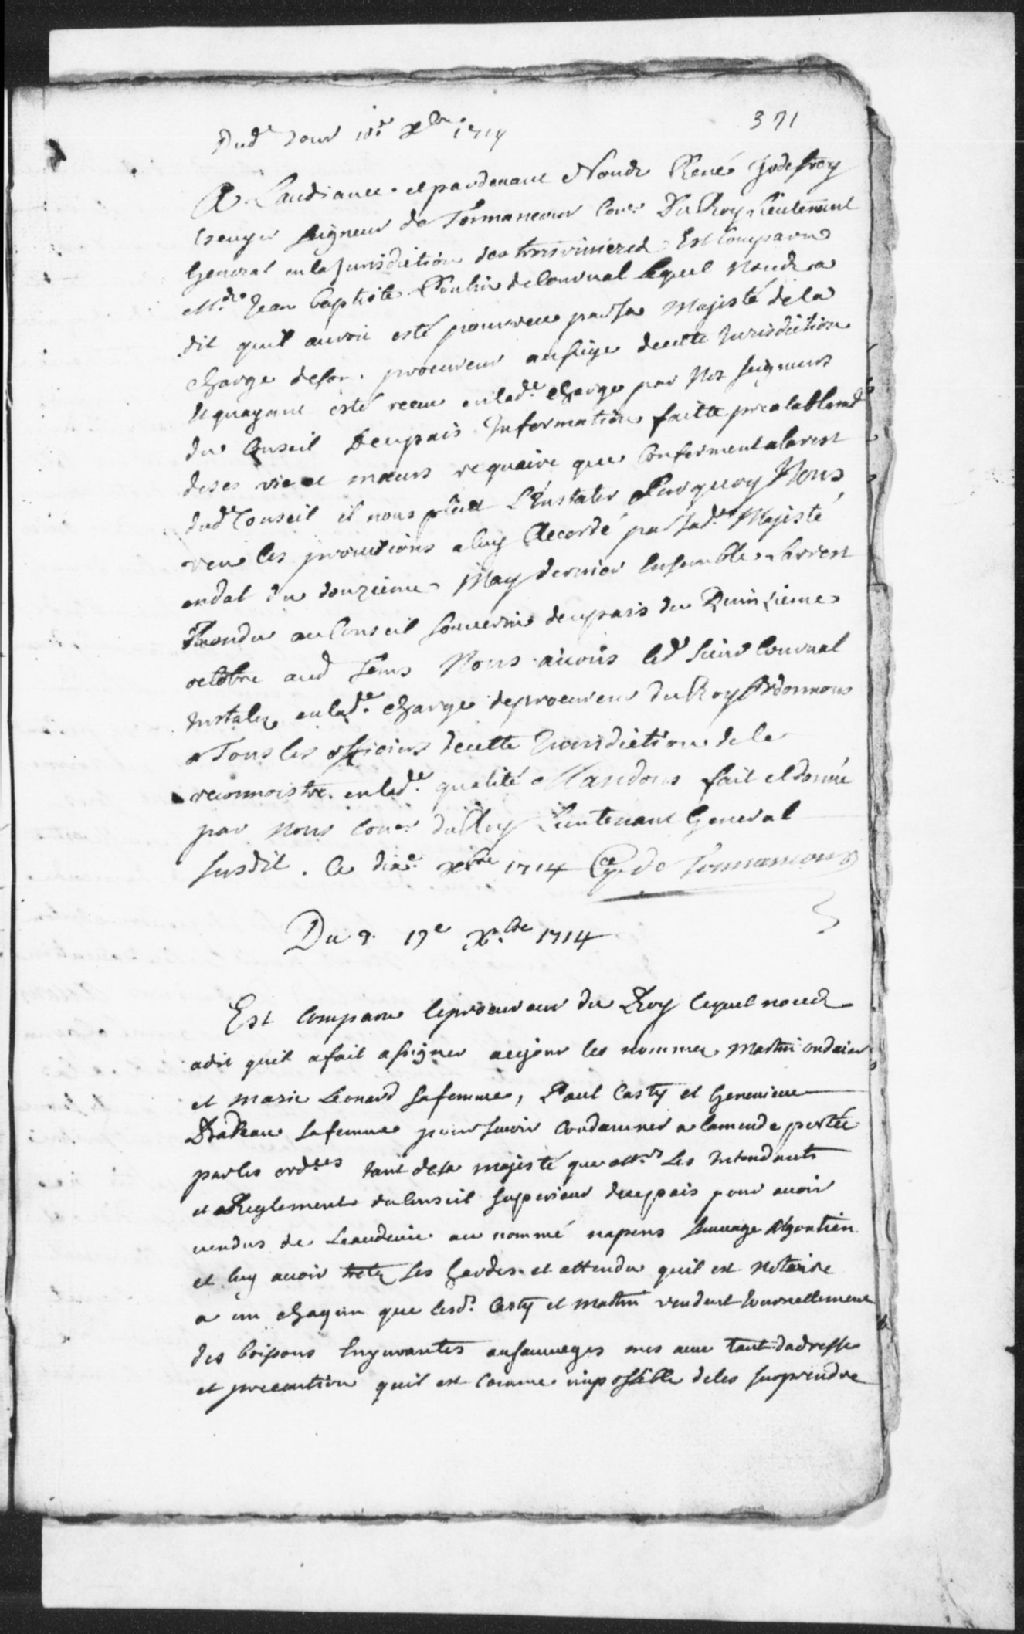 371
Dud.t Jour 10e xbre 1714
A Laudiance et pardevant Nous René Godefroy
Escuyer Seigneur de Tonnancour Con.er Du Roy Lieutenant
General en la Jurisdiction des trois rivieres Est Comparu
M.re Jean baptiste Poulin de Courval lequel Nous a
dit quil auroit esté pourvueu par sa Majesté de la
charge de son procureur au siege de cette Jurisdiction
et quayant esté receu en lad.e charge par Nos seigneurs
du Conseil de ce pais Information faitte prealablem.t
de ses vie et mœurs requaire que Conformement a larest
dud Conseil il nous plut L'Instaler Surquoy Nous
veu les provisions a luy Accordé par sad.e Majesté
en dat du douzieme May dernier Ensemble Larrest
Rendu au Conseil souverain de ce pais du Quinzieme
octobre aud tems Nous avons led sieur Courval
Instalez en lad.e charge de procureur du Roy Ordonnons
a Tous les officiers de cette Jurisdiction de le
reconnoistre en lad.e qualité Mandons fait et donné
par Nous Con.er du Roy Lieutenant General
susdit. Ce dix.e xbre 1714 de Tonnancour
Du 17e xbre 1714
Est Comparu le procureur du Roy lequel nous
a dit quil a fait assigner a ce jour les nommez Martin
et Marie Leonard sa femme, Paul Casty et Genevieve
sa femme pour se voir Condamner a lamende portée
par les ord.ces tant de sa majesté que de Les Intendants
et Reglement du Conseil superieur de ce pais pour avoir
vendus de Leaudevie au nommé sauvage Algontien
et luy avoir les hardes et attendu quil est Notoire
a un chaqun que lesd. Casty et Martin vendent Journellement
des boisons Enyvrantes au sauvages mes avec tant dadresse
et precaution quil est comme impossible de les surprendre